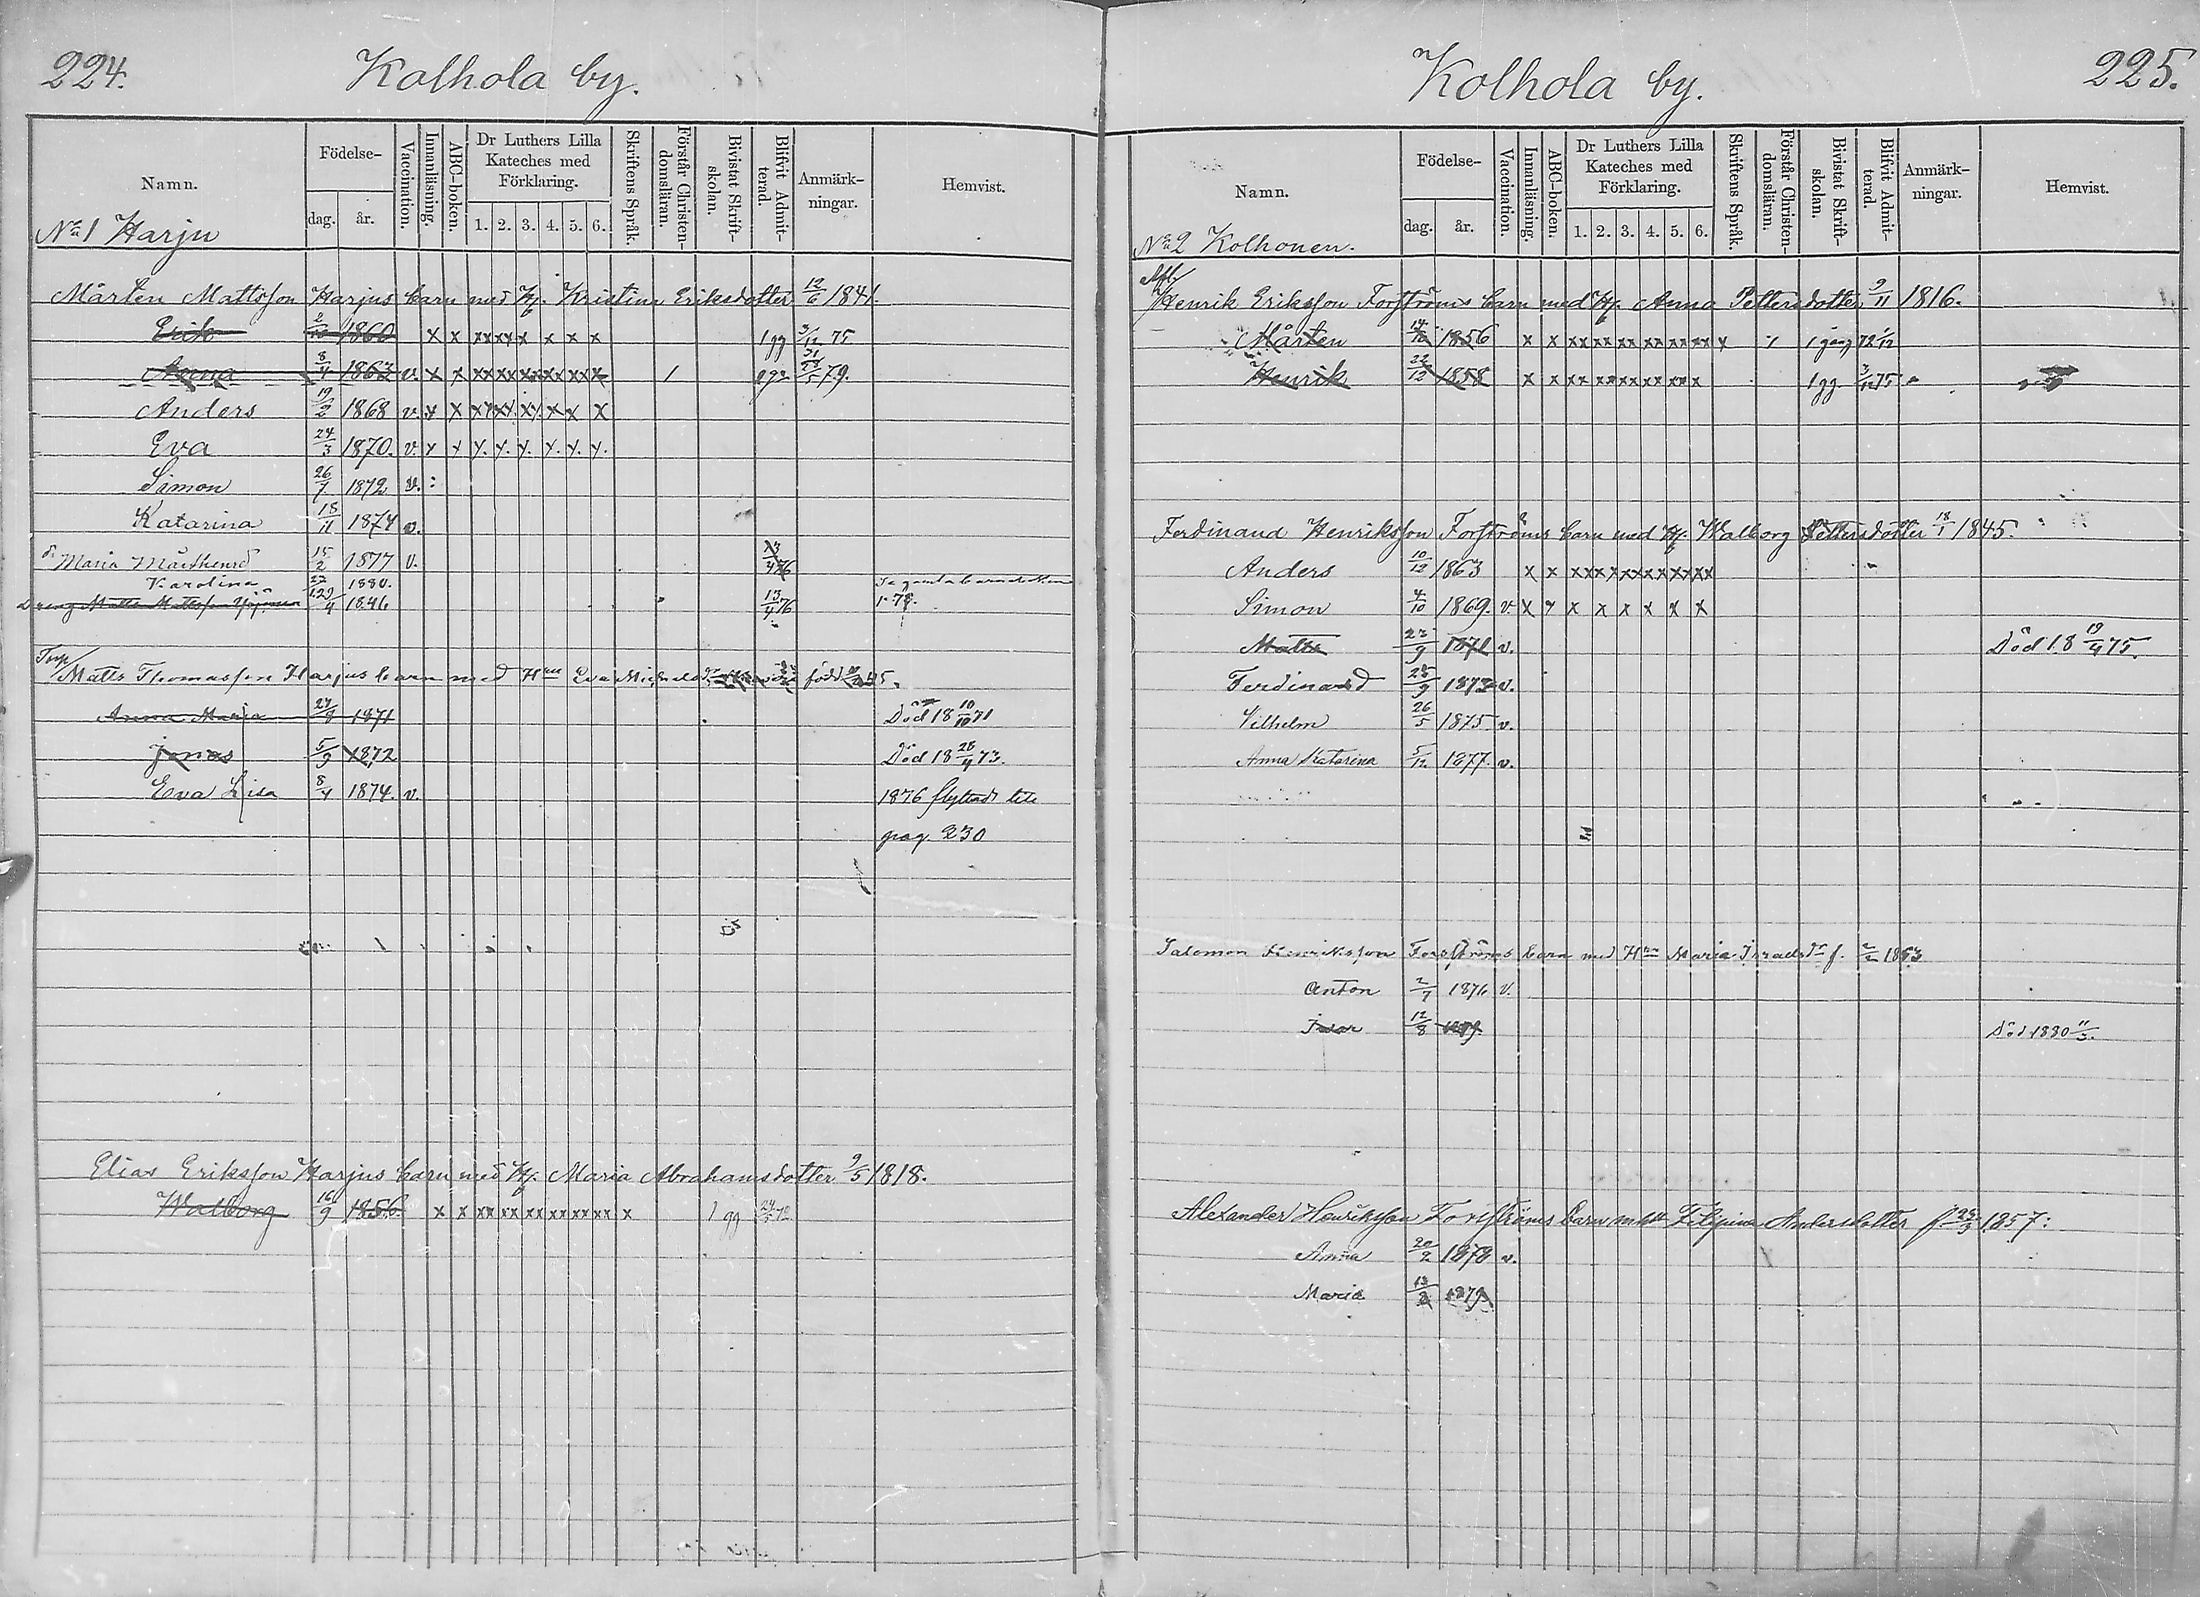 224.
Kolhola by.
Namn.
Födelse-
dag.
år.
Vaccination.
Innanläsning.
ABC-boken.
Dr Luthers Lilla
Kateches med
Förklaring.
1. 2. 3. 4. 5. 6.
Skriftens Språk.
Förstår Christen-
domsläran.
Bivistat Skrift-
skolan.
Blifvit Admit-
terad.
Anmärk-
ningar.
Hemvist.
No 1 Harju
Mårten Mattsson Harjus barn med H. Kristina Eriksdotter 12/6 1841
Erik 2/10 1860 x x xx xx x x x x 1 gg 3/12 75
Anna 8/4 1863 v. x x xx xx xx xx xx x 1 2 gg 79.
Anders 19/2 1868 v. x x xx xx xx x x x
Eva 24/3 1870. v. x x x. x. x. x. x. x.
Simon 26/7 1872 v. :
Katarina 18/11 1874 v.
Maria 15/2 1877 v.
Karolina 1880.
Matts Mattsson 29/4 1846 13/4 76
Torp/Matts Thomasson Harjus barn med Hun Eva född
Anna Maria 27/8 1871 Död 18 10/10 71
Jonas 5/9 1872 Död 18 28/4 73.
Eva Lisa 8/4 1874. v. 1876 flyttad till
pag. 230
Elias Eriksson Harjus barn med H. Maria Abrahamsdotter 9/5 1818.
Walborg 16/9 1856. x x xx xx xx xx xx xx x 1 gg
Kolhola by.
225.
Namn.
Födelse-
dag.
år.
Vaccination.
Innanläsning.
ABC-boken.
Dr Luthers Lilla
Kateches med
Förklaring.
1. 2. 3. 4. 5. 6.
Skriftens Språk.
Förstår Christen-
domsläran.
Bivistat Skrift-
skolan.
Blifvit Admit-
terad.
Anmärk-
ningar.
Hemvist.
No 2 Kolhonen.
Henrik Eriksson Forströms barn med H. Anna Pettersdotter 9/11 1816.
Mårten 14/10 1856 x x xx xx xx xx xx xx x 1 1 gång 72 1/12
Henrik 22/12 1858 x x xx xx xx xx xx x 1 gg 3/12 75
Ferdinand Henriksson Forströms barn med H. Walborg Pettersdotter 18/1 1845.
Anders 10/12 1863 x x xx xx xx xx xx xx
Simon 4/10 1869. v. x x x x x x x x
Matts 23/9 1871 v. Död 18 19/4 75.
Ferdinand 28/9 1873 v.
Vilhelm 26/5 1875 v.
Anna Katarina 5/12 1877. v.
Salomon Henriksson Forströms barn med Hun Maria Israelsdr f. 2/2 1853
Anton 2/7 1876 v.
12/8 1879. Död 1880 11/3.
Alexander Henriksson Forströms barn m. h. Filipina Andersdotter f. 1857:
Anna 20/2 1878 v.
Maria 1879